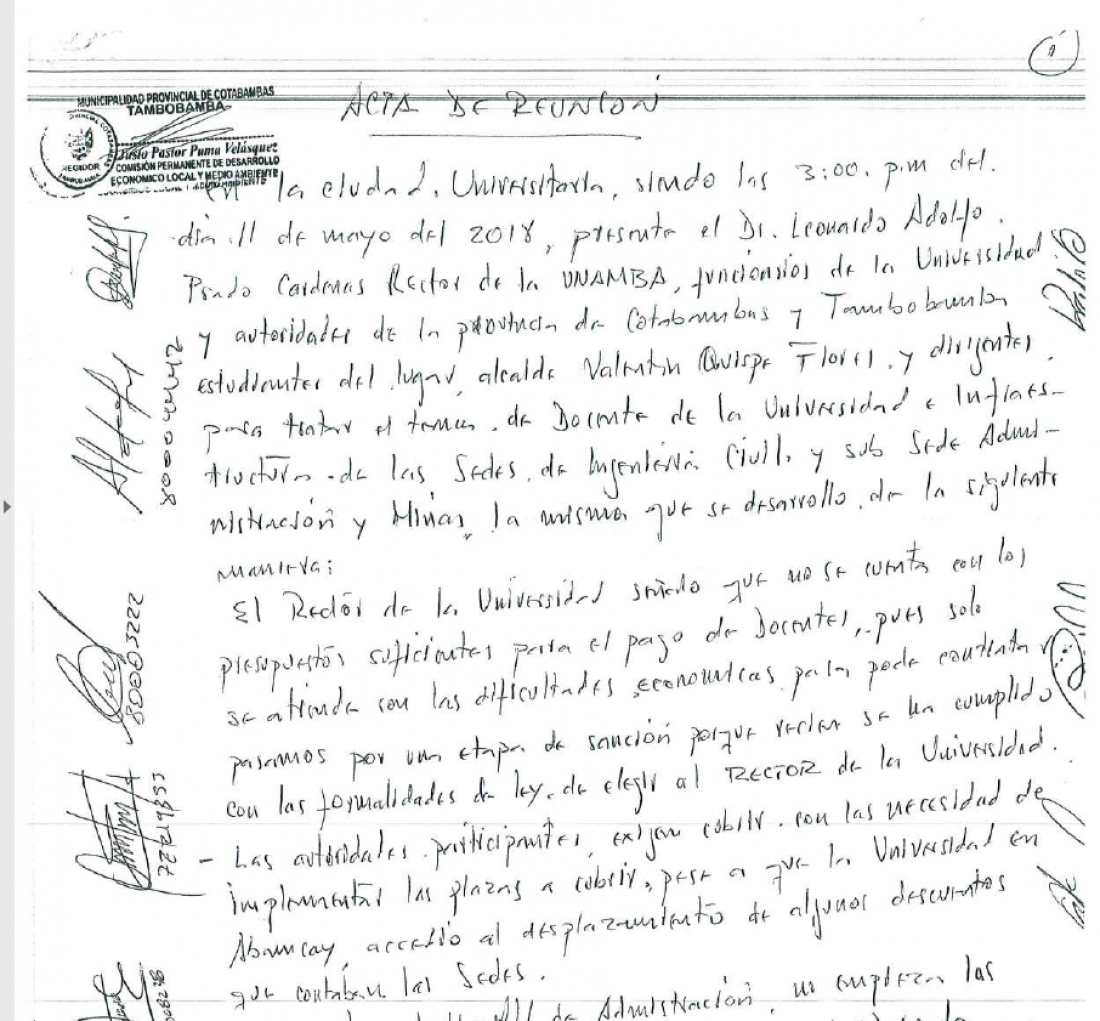 MUNICIPALIDAD PROVINCIAL DE COTABAMBAS
TAMBOBAMBA
Justo Pastor Puma Velásquez
REGIDOR
COMISIÓN PERMANENTE DE DESARROLLO
ECONOMICO LOCAL Y MEDIO AMBIENTE
ACTA DE REUNION
En la ciudad Universitaria, siendo las 3:00. p.m del.
día 11 de mayo del 2018, presente el Dr. Leonardo Adolfo.
Prado Cardenas Rector de la UNAMBA, funcionarios de la Universidad
y autoridades de la provincia de Cotabambas y Tambobamba
estudiantes del lugar, alcalde Valentin Quispe Flores, y dirigentes.
para tratar el tema, de Docente de la Universidad e Infraes-
tructura de las Sedes, de Ingenieria Civil, y sub Sede Admi-
nistración y Minas, la misma que se desarrollo, de la siguiente
manera:
El Rector de la Universidad señalo que no se cuenta con los
presupuestos suficientes para el pago de Docentes, pues solo
se atiende con las dificultades economicas para
pasamos por una etapa de sanción porque se ha cumplido
con las formalidades de ley, de elegir al RECTOR de la Universidad.
- Las autoridades participantes, exigen cubrir. con las necesidad de
implementar las plazas a cubrir, pese a que la Universidad en
Abancay, accedio al desplazamiento de algunos
que contaban las Sedes.
de Admistración, las
80004442
80005222
72219353